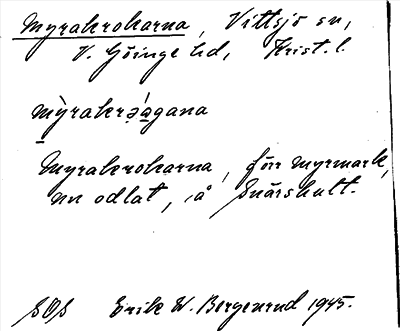 Myrakrokarna, Vittsjö sn,
V. Göinge hd, Krist. l.
mỳrakrə́agana
Myrakrokarna, förr myrmark,
nu odlat, å Snärshult.
SOS Erik W. Bergenrud 1945.